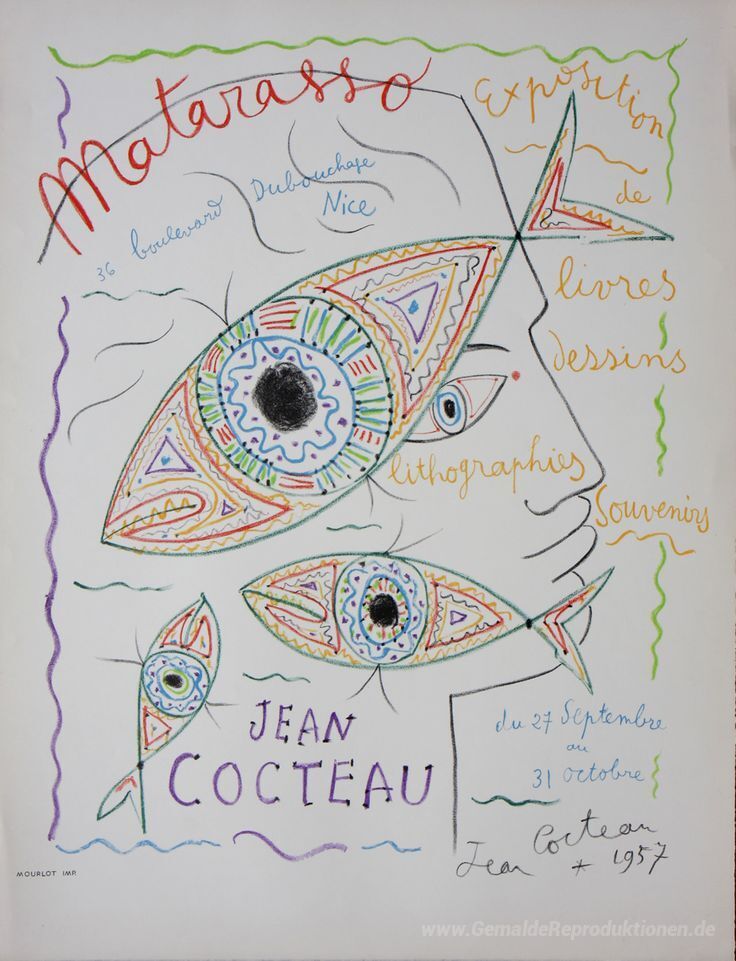 Matarasso
36 boulevard Dubouchage
Nice
Exposition
de
livres
dessins
lithographies
Souvenirs
JEAN
COCTEAU
du 27 Septembre
au
31 octobre
Jean Cocteau
* 1957
MOURLOT IMP.
www.GemaldeReproduktionen.de